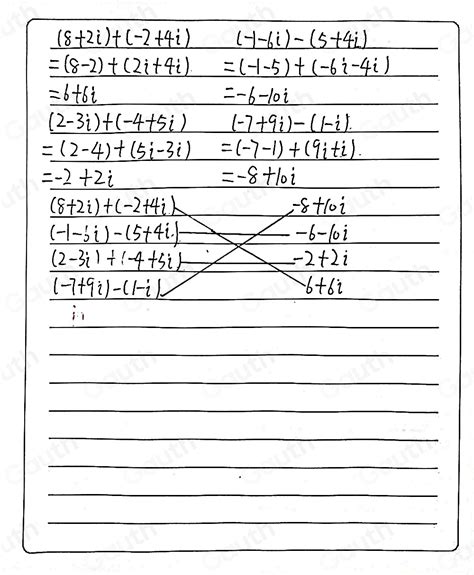 (8+2i)+(-2+4i) (-1-6i)-(5+4i)
=(8-2)+(2i+4i) =(-1-5)+(-6i-4i)
=6+6i =-6-10i
(2-3i)+(-4+5i) (-7+9i)-(1-i)
=(2-4)+(5i-3i) =(-7-1)+(9i+i)
=-2+2i =-8+10i
(8+2i)+(-2+4i) -8+10i
(-1-6i)-(5+4i) -6-10i
(2-3i)+(-4+5i) -2+2i
(-7+9i)-(1-i) 6+6i